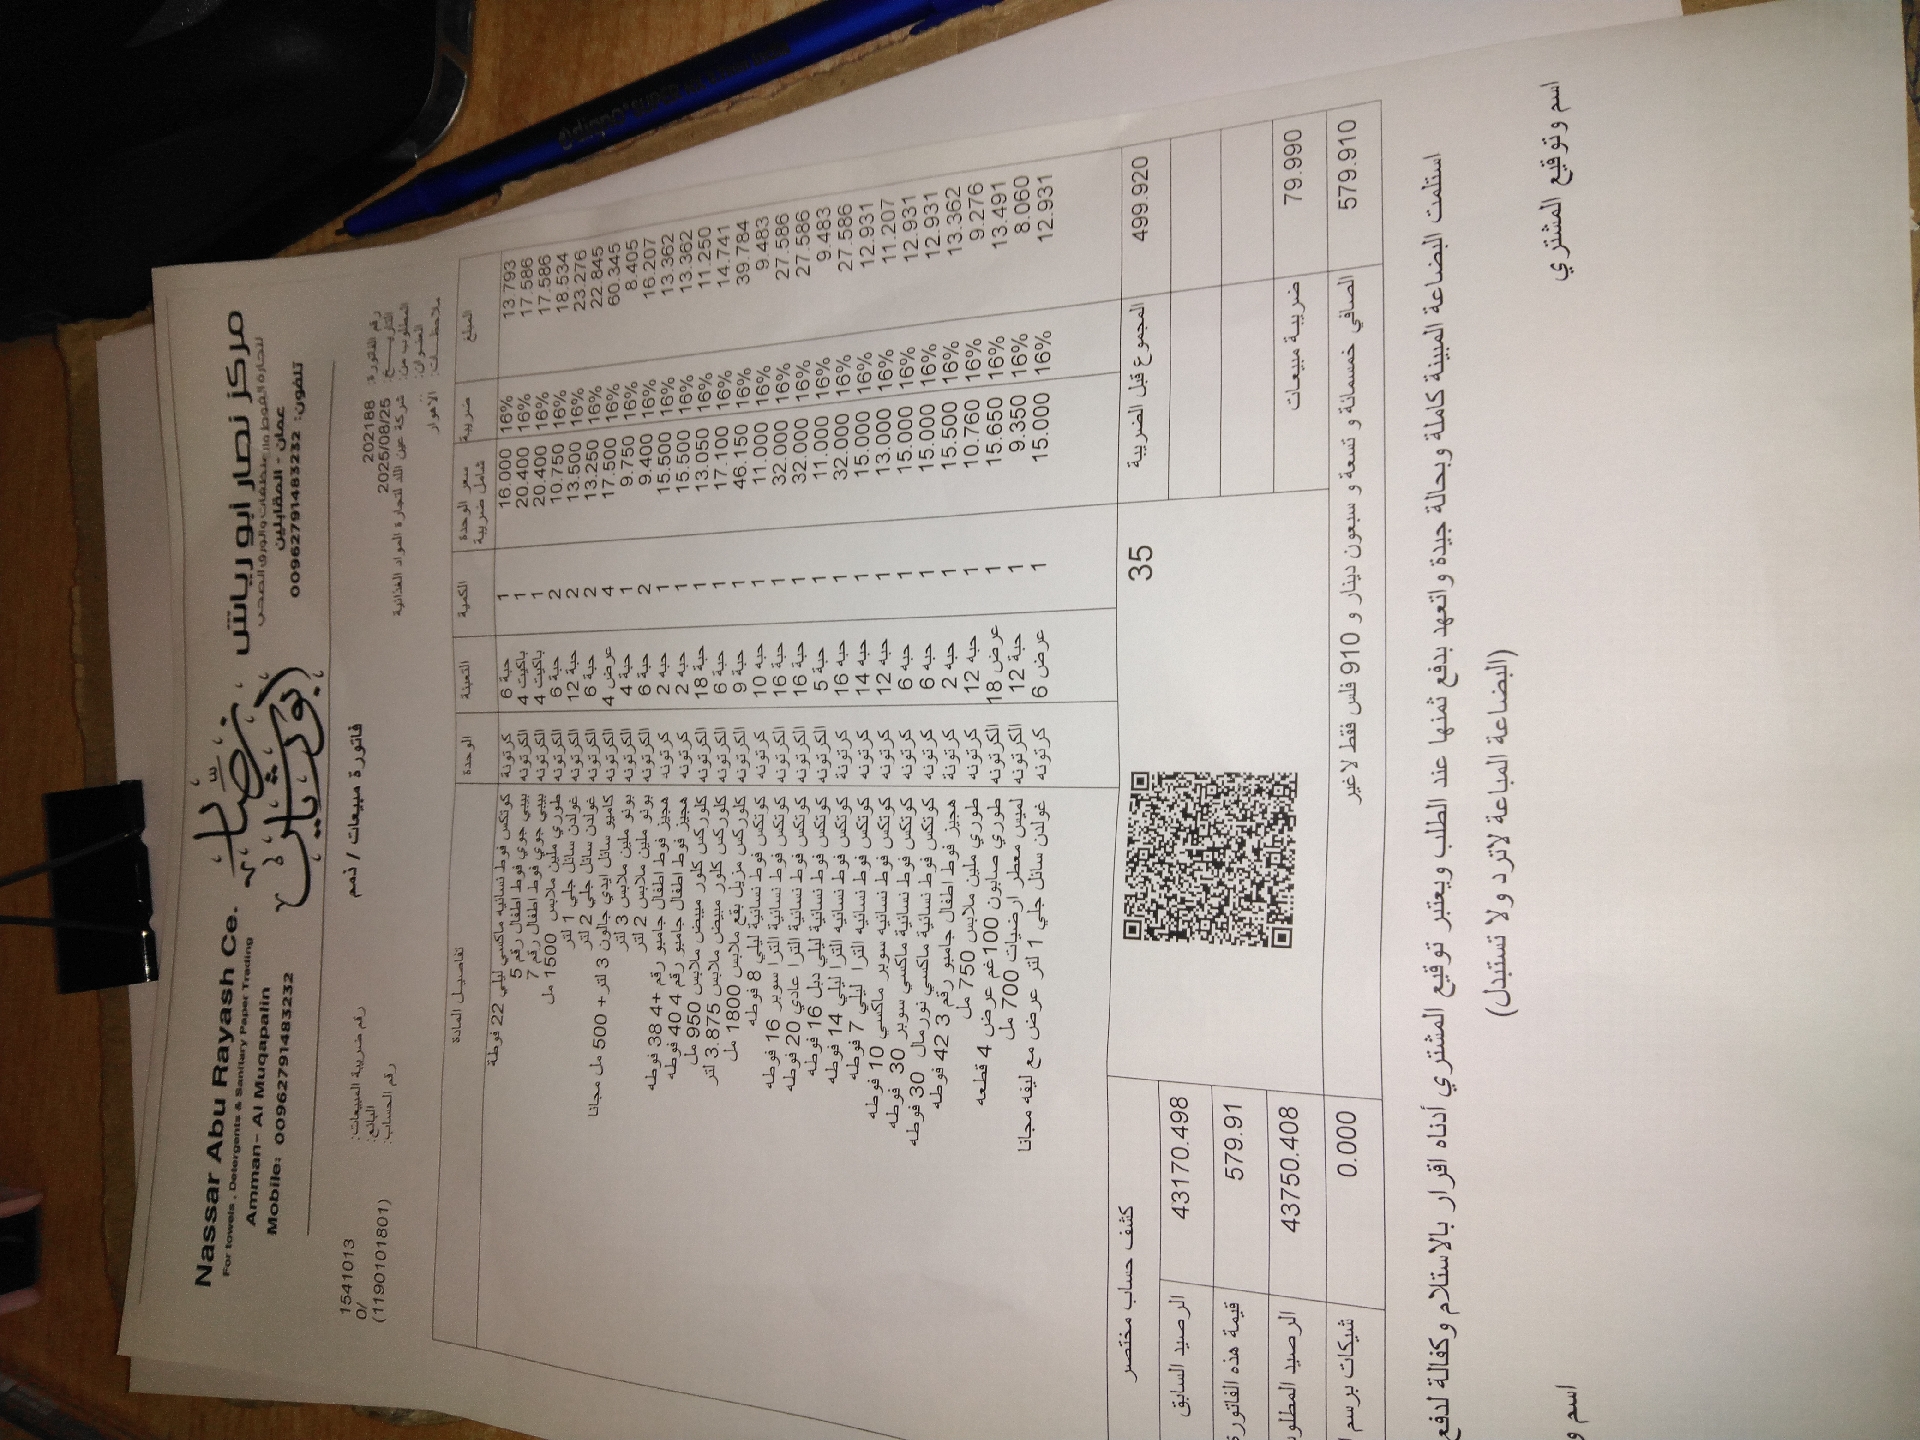 Nassar Abu Rayash Ce.
For towels , Detergents & Sanitary Paper Trading
Amman- Al Muqapalin
Mobile: 00962791483232
نصّار
ابو رياش
مركز نصار أبو رياش
لتجارة الفوط والمنظفات والورق الصحي
عمان - المقابلين
تلفون: 00962791483232
فاتورة مبيعات / ذمم
رقم الفاتورة: 202188
التاريـــخ: 2025/08/25
المطلوب من: شركة عين اللد لتجارة المواد الغذائية
العنـوان:
ملاحظــات: الاهوار
رقم ضريبة المبيعات: 1541013
البائع: 0/
رقم الحساب: (1190101801)
المبلغ ضريبة سعر الوحدة شامل ضريبة الكمية التعبئة الوحدة تفاصيـل المـادة
13.793 16% 16.000 1 حبة 6 كرتونة كوتكس فوط نسائيه ماكسي ليلي 22 فوطة
17.586 16% 20.400 1 باكيت 4 الكرتونه بيبي جوي فوط اطفال رقم 5
17.586 16% 20.400 1 باكيت 4 الكرتونه بيبي جوي فوط اطفال رقم 7
18.534 16% 10.750 2 حبة 6 الكرتونه طوري ملين ملابس 1500 مل
23.276 16% 13.500 2 حبة 12 الكرتونه غولدن سائل جلي 1 لتر
22.845 16% 13.250 2 حبة 6 الكرتونه غولدن سائل جلي 2 لتر
60.345 16% 17.500 4 عرض 4 الكرتونه كامبو سائل ايدي جالون 3 لتر + 500 مل مجانا
8.405 16% 9.750 1 حبة 4 الكرتونه بونو ملين ملابس 3 لتر
16.207 16% 9.400 2 حبة 6 الكرتونه بونو ملين ملابس 2 لتر
13.362 16% 15.500 1 حبه 2 كرتونه هجيز فوط اطفال جامبو رقم +4 38 فوطه
13.362 16% 15.500 1 حبه 2 كرتونه هجيز فوط اطفال جامبو رقم 4 40 فوطه
11.250 16% 13.050 1 حبة 18 الكرتونه كلوركس كلور مبيض ملابس 950 مل
14.741 16% 17.100 1 حبة 6 الكرتونه كلوركس كلور مبيض ملابس 3.875 لتر
39.784 16% 46.150 1 حبة 9 الكرتونه كلوركس مزيل بقع ملابس 1800 مل
9.483 16% 11.000 1 حبه 10 كرتونه كوتكس فوط نسائية ليلي 8 فوطه
27.586 16% 32.000 1 حبة 16 الكرتونه كوتكس فوط نسائية الترا سوبر 16 فوطه
27.586 16% 32.000 1 حبة 16 الكرتونه كوتكس فوط نسائية الترا عادي 20 فوطه
9.483 16% 11.000 1 حبة 5 الكرتونه كوتكس فوط نسائية ليلي دبل 16 فوطه
27.586 16% 32.000 1 حبه 16 كرتونة كوتكس فوط نسائيه الترا ليلي 14 فوطه
12.931 16% 15.000 1 حبه 14 كرتونه كوتكس فوط نسائيه الترا ليلي 7 فوطه
11.207 16% 13.000 1 حبه 12 كرتونه كوتكس فوط نسائيه سوبر ماكسي 10 فوطه
12.931 16% 15.000 1 حبه 6 كرتونه كوتكس فوط نسائية ماكسي سوبر 30 فوطه
12.931 16% 15.000 1 حبه 6 كرتونه كوتكس فوط نسائية ماكسي نورمال 30 فوطه
13.362 16% 15.500 1 حبه 2 كرتونة هجيز فوط اطفال جامبو رقم 3 42 فوطه
9.276 16% 10.760 1 حبه 12 كرتونه طوري ملين ملابس 750 مل
13.491 16% 15.650 1 عرض 18 الكرتونه طوري صابون 100غم عرض 4 قطعه
8.060 16% 9.350 1 حبة 12 الكرتونه لميس معطر ارضيات 700 مل
12.931 16% 15.000 1 عرض 6 كرتونه غولدن سائل جلي 1 لتر عرض مع ليفه مجانا
35
المجموع قبل الضريبة 499.920
ضريبـة مبيعـات 79.990
الصافي خمسمائة و تسعة و سبعون دينار و 910 فلس فقط لاغير 579.910
كشف حساب مختصر
الرصيد السابق 43170.498
قيمة هذه الفاتورة 579.91
الرصيد المطلو 43750.408
شيكات برسم ا 0.000
استلمت البضاعة المبينة كاملة وبحالة جيدة واتعهد بدفع ثمنها عند الطلب ويعتبر توقيع المشتري أدناه اقرار بالاستلام وكفالة لدفع
(البضاعة المباعة لاترد ولا تستبدل)
اسم وتوقيع المشتري
اسم و